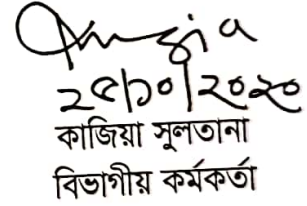 ২৫/১০/২০২০
কাজিয়া সুলতানা
বিভাগীয় কর্মকর্তা